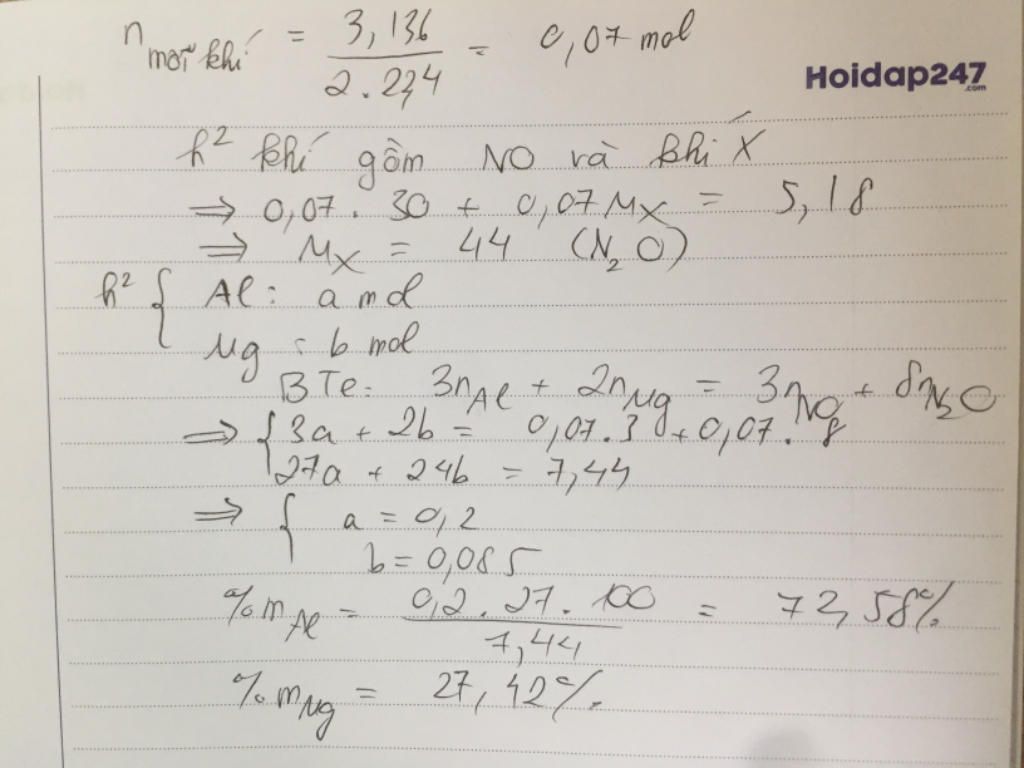 n mỗi khí = 3,136 / 2.22,4 = 0,07 mol
Hoidap247.com
h² khí gồm NO và khí X
⇒ 0,07 . 30 + 0,07 Mx = 5,18
⇒ Mx = 44 (N₂O)
h² { Al : a mol
Mg : b mol
BTe: 3nAl + 2nMg = 3nNO + 8nN₂O
⇒ { 3a + 2b = 0,07.3 + 0,07.8
27a + 24b = 7,44
⇒ { a = 0,2
b = 0,085
%mAl = 0,2 . 27 . 100 / 7,44 = 72,58%
%mMg = 27,42%.